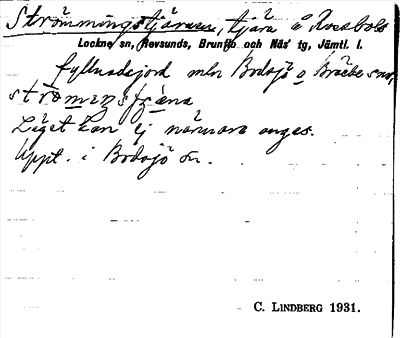 Strömmingstjärnen, tjärn å Rossbols
Lockne sn, Revsunds, Brunflo och Näs' tg, Jämtl. l.
fyllnadsjord mln Bodsjö o Bräcke snr.
Läget kan ej närmare anges.
Uppt. i Bodsjö sn.
C. LINDBERG 1931.